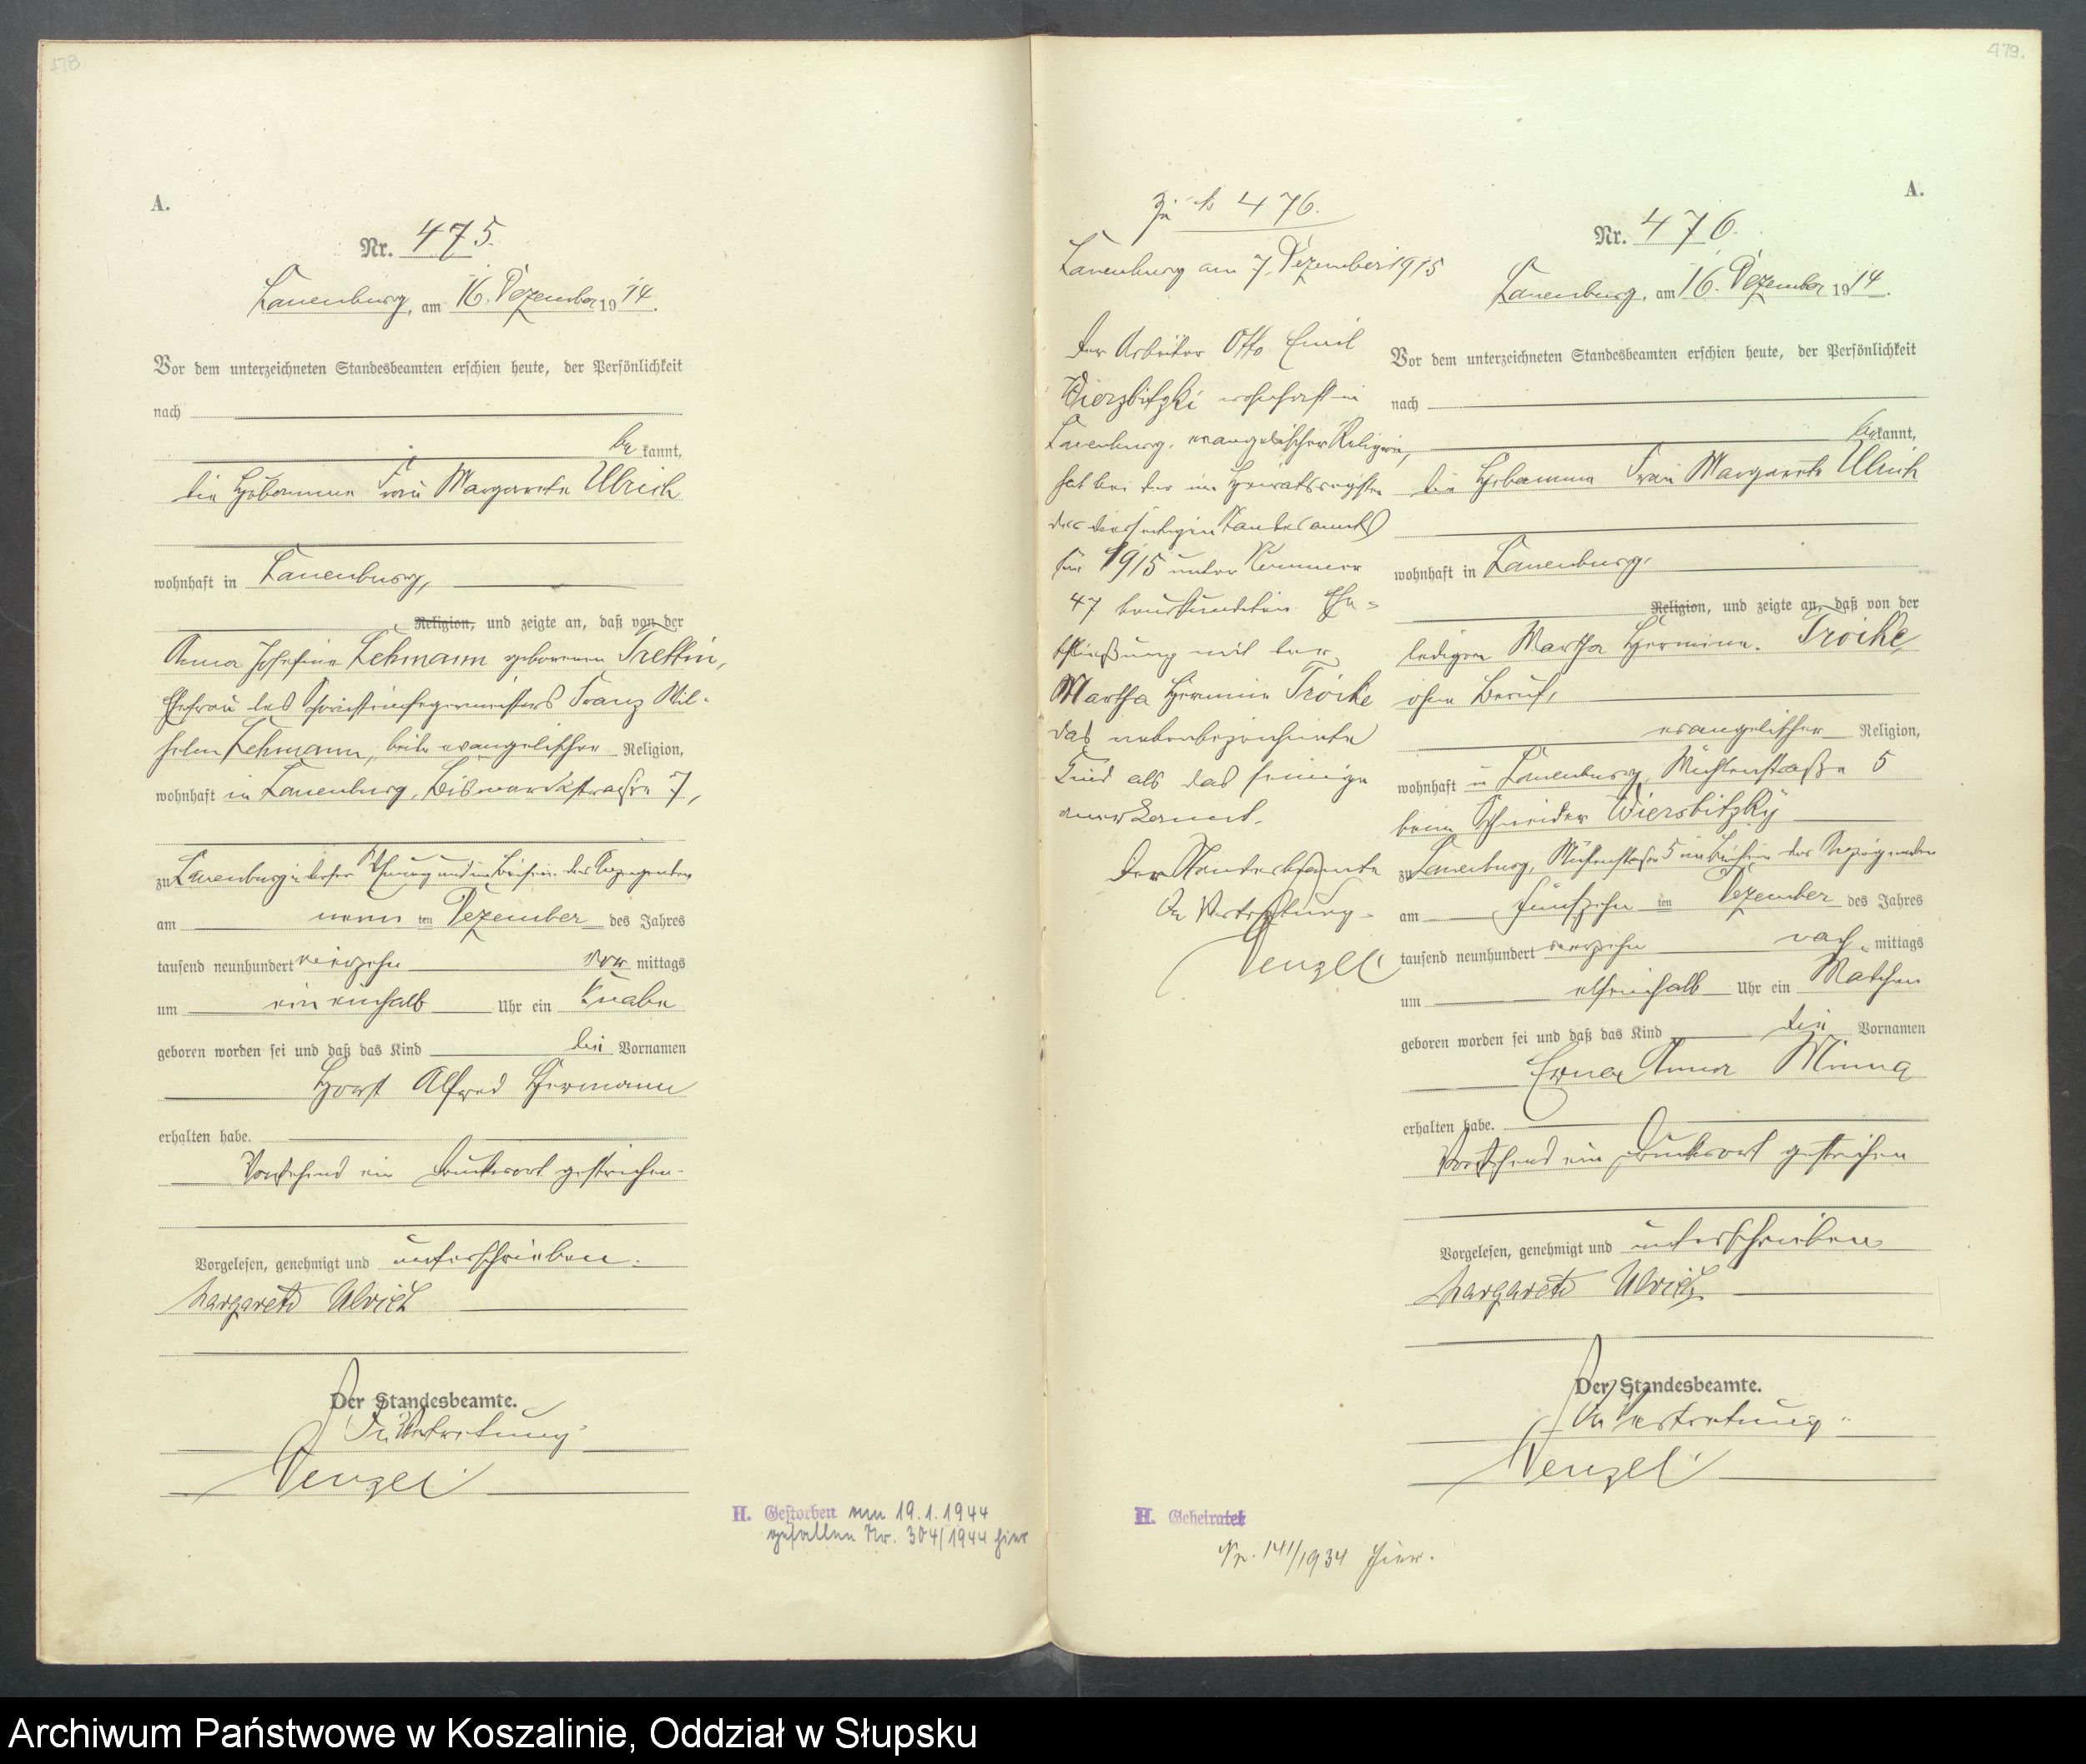 178.
A.
Nr. 475.
Lauenburg, am 16. Dezember 1914.
Vor dem unterzeichneten Standesbeamten erschien heute, der Persönlichkeit
nach
be kannt,
die Hebamme Frau Margarete Ulrich
wohnhaft in Lauenburg,
Religion, und zeigte an, daß von der
Anna Josefine Lehmann geborenen Trettin,
Ehefrau des Schornsteinfegermeisters Franz Wil-
helm Lehmann, beide evangelischer Religion,
wohnhaft in Lauenburg, Bismarckstraße 7,
zu Lauenburg in dieser Wohnung und im Beisein der Anzeigenden
am neun ten Dezember des Jahres
tausend neunhundert vierzehn vor mittags
um ein einhalb Uhr ein Knabe
geboren worden sei und daß das Kind die Vornamen
Horst Alfred Hermann
erhalten habe.
Vorstehend ein Druckwort gestrichen.
Vorgelesen, genehmigt und unterschrieben.
Margarete Ulrich
Der Standesbeamte.
In Vertretung
Wenzel.
H. Gestorben am 19.1.1944
gefallen Nr. 304/1944 hier
zu № 476.
Lauenburg am 7. Dezember 1915
Der Arbeiter Otto Emil
Wierzbitzki wohnhaft in
Lauenburg, evangelischer Religion,
hat bei der im Heiratsregister
des diesseitigen Standesamts
für 1915 unter Nummer
47 beurkundeten Ehe-
schließung mit der
Martha Hermine Troike
das nebenbezeichnete
Kind als das seinige
anerkannt.
Der Standesbeamte
In Vertretung.
Wenzel
H. Geheiratet
Nr. 141/1934 hier.
479.
A.
Nr. 476.
Lauenburg, am 16. Dezember 1914.
Vor dem unterzeichneten Standesbeamten erschien heute, der Persönlichkeit
nach
be kannt,
die Hebamme Frau Margarete Ulrich
wohnhaft in Lauenburg,
Religion, und zeigte an, daß von der
ledigen Martha Hermine Troike,
ohne Beruf,
evangelischer Religion,
wohnhaft in Lauenburg, Mühlenstraße 5
beim Schneider Wiersbitzky
zu Lauenburg, Mühlenstraße 5 im Beisein der Anzeigenden
am fünfzehn ten Dezember des Jahres
tausend neunhundert vierzehn nach mittags
um elfeinhalb Uhr ein Mädchen
geboren worden sei und daß das Kind die Vornamen
Erna Anna Minna
erhalten habe.
Vorstehend ein Druckwort gestrichen
Vorgelesen, genehmigt und unterschrieben
Margarete Ulrich
Der Standesbeamte.
In Vertretung.
Wenzel
Archiwum Państwowe w Koszalinie, Oddział w Słupsku